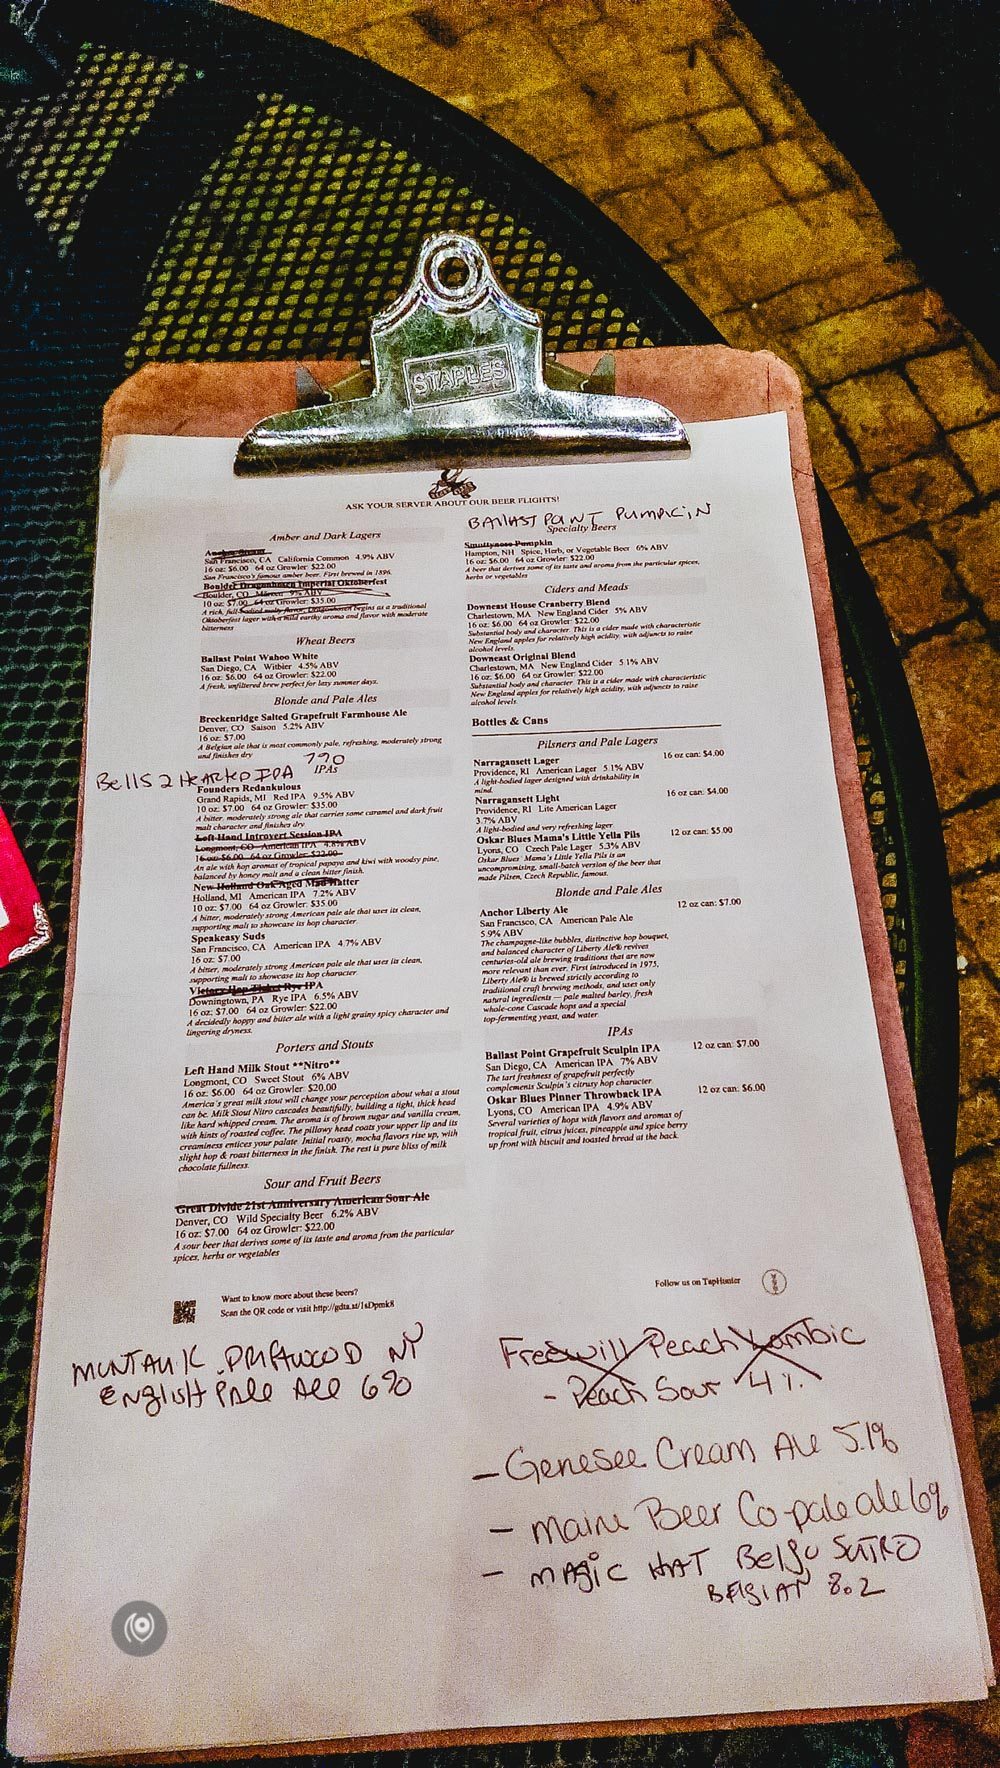 STAPLES
ASK YOUR SERVER ABOUT OUR BEER FLIGHTS!
Amber and Dark Lagers
San Francisco, CA California Common 4.9% ABV
16 oz: $6.00 64 oz Growler: $22.00
San Francisco's famous amber beer. First brewed in 1896.
Boulder Dragonhosen Imperial Oktoberfest
Boulder, CO Märzen 9% ABV
10 oz: $7.00 64 oz Growler: $35.00
A rich, full-bodied malty flavor, Dragonhosen begins as a traditional
Oktoberfest lager with a mild earthy aroma and flavor with moderate
bitterness
Wheat Beers
Ballast Point Wahoo White
San Diego, CA Witbier 4.5% ABV
16 oz: $6.00 64 oz Growler: $22.00
A fresh, unfiltered brew perfect for lazy summer days.
Blonde and Pale Ales
Breckenridge Salted Grapefruit Farmhouse Ale
Denver, CO Saison 5.2% ABV
16 oz: $7.00
A Belgian ale that is most commonly pale, refreshing, moderately strong
and finishes dry
Bells 2 Hearted IPA 7%
IPAs
Founders Redankulous
Grand Rapids, MI Red IPA 9.5% ABV
10 oz: $7.00 64 oz Growler: $35.00
A bitter, moderately strong ale that carries some caramel and dark fruit
malt character and finishes dry
Left Hand Introvert Session IPA
Longmont, CO American IPA 4.8% ABV
16 oz: $6.00 64 oz Growler: $22.00
An ale with hop aromas of tropical papaya and kiwi with woodsy pine,
balanced by honey malt and a clean bitter finish.
New Holland Oak Aged Mad Hatter
Holland, MI American IPA 7.2% ABV
10 oz: $7.00 64 oz Growler: $35.00
A bitter, moderately strong American pale ale that uses its clean,
supporting malt to showcase its hop character
Speakeasy Suds
San Francisco, CA American IPA 4.7% ABV
16 oz: $7.00
A bitter, moderately strong American pale ale that uses its clean,
supporting malt to showcase its hop character
Victory Hop Ticket Rye IPA
Downingtown, PA Rye IPA 6.5% ABV
16 oz: $7.00 64 oz Growler: $22.00
A decidedly hoppy and bitter ale with a light grainy spicy character and
lingering dryness.
Porters and Stouts
Left Hand Milk Stout **Nitro**
Longmont, CO Sweet Stout 6% ABV
16 oz: $6.00 64 oz Growler: $20.00
America's great milk stout will change your perception about what a stout
can be. Milk Stout Nitro cascades beautifully, building a tight, thick head
like hard whipped cream. The aroma is of brown sugar and vanilla cream,
with hints of roasted coffee. The pillowy head coats your upper lip and its
creaminess entices your palate. Initial roasty, mocha flavors rise up, with
slight hop & roast bitterness in the finish. The rest is pure bliss of milk
chocolate fullness.
Sour and Fruit Beers
Great Divide 21st Anniversary American Sour Ale
Denver, CO Wild Specialty Beer 6.2% ABV
16 oz: $7.00 64 oz Growler: $22.00
A sour beer that derives some of its taste and aroma from the particular
spices, herbs or vegetables
BALLAST POINT PUMPKIN
Specialty Beers
Smuttynose Pumpkin
Hampton, NH Spice, Herb, or Vegetable Beer 6% ABV
16 oz: $6.00 64 oz Growler: $22.00
A beer that derives some of its taste and aroma from the particular spices,
herbs or vegetables
Ciders and Meads
Downeast House Cranberry Blend
Charlestown, MA New England Cider 5% ABV
16 oz: $6.00 64 oz Growler: $22.00
Substantial body and character. This is a cider made with characteristic
New England apples for relatively high acidity, with adjuncts to raise
alcohol levels.
Downeast Original Blend
Charlestown, MA New England Cider 5.1% ABV
16 oz: $6.00 64 oz Growler: $22.00
Substantial body and character. This is a cider made with characteristic
New England apples for relatively high acidity, with adjuncts to raise
alcohol levels.
Bottles & Cans
Pilsners and Pale Lagers
Narragansett Lager 16 oz can: $4.00
Providence, RI American Lager 5.1% ABV
A light-bodied lager designed with drinkability in
mind.
Narragansett Light 16 oz can: $4.00
Providence, RI Lite American Lager
3.7% ABV
A light-bodied and very refreshing lager
Oskar Blues Mama's Little Yella Pils 12 oz can: $5.00
Lyons, CO Czech Pale Lager 5.3% ABV
Oskar Blues Mama's Little Yella Pils is an
uncompromising, small-batch version of the beer that
made Pilsen, Czech Republic, famous.
Blonde and Pale Ales
Anchor Liberty Ale 12 oz can: $7.00
San Francisco, CA American Pale Ale
5.9% ABV
The champagne-like bubbles, distinctive hop bouquet,
and balanced character of Liberty Ale® revives
centuries-old ale brewing traditions that are now
more relevant than ever. First introduced in 1975,
Liberty Ale® is brewed strictly according to
traditional craft brewing methods, and uses only
natural ingredients — pale malted barley, fresh
whole-cone Cascade hops and a special
top-fermenting yeast, and water.
IPAs
Ballast Point Grapefruit Sculpin IPA 12 oz can: $7.00
San Diego, CA American IPA 7% ABV
The tart freshness of grapefruit perfectly
complements Sculpin's citrusy hop character.
Oskar Blues Pinner Throwback IPA 12 oz can: $6.00
Lyons, CO American IPA 4.9% ABV
Several varieties of hops with flavors and aromas of
tropical fruit, citrus juices, pineapple and spice berry
up front with biscuit and toasted bread at the back.
Want to know more about these beers?
Scan the QR code or visit http://gdta.st/1sDpmk8
Follow us on TapHunter
MONTAUK DRIFTWOOD NY
English Pale Ale 6%
Freewill Peach Lambic
- Peach Sour 4%
- Genesee Cream Ale 5.1%
- Maine Beer Co-pale ale 6%
- MAgic HAT Belgo SUTRO
BElgIAN 8.2